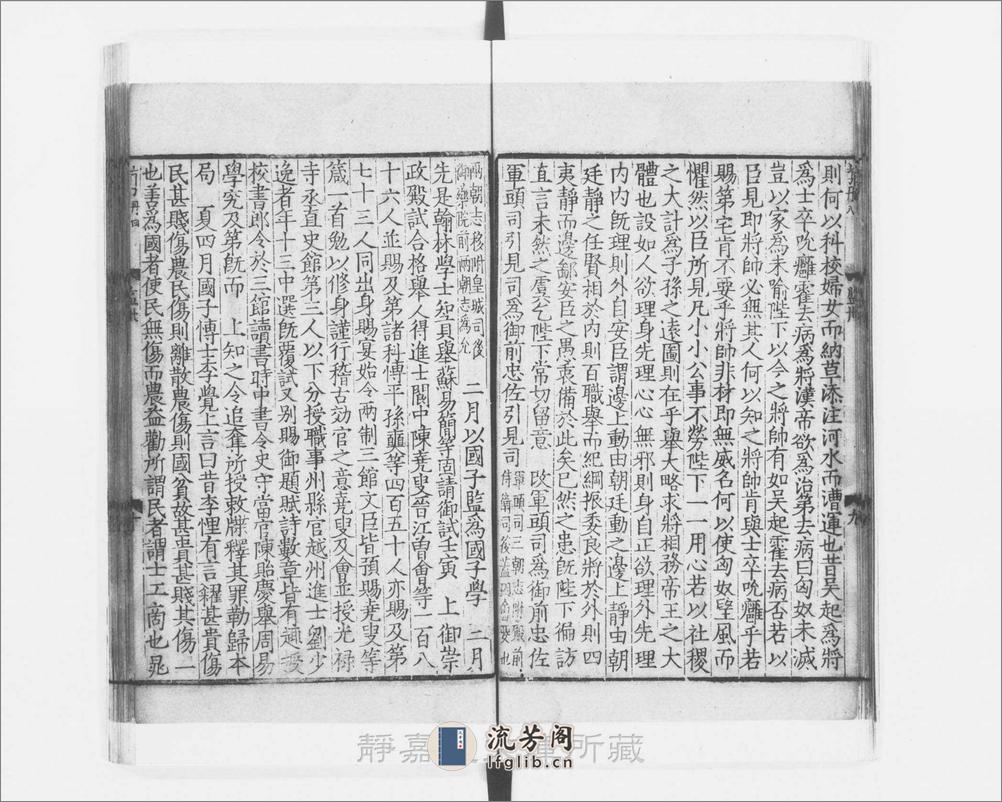 則何以科校婦女而納苴添注河水而漕運也昔吴起為將
為士卒吮癰霍去病為將漢帝欲為治第去病曰匈奴未滅
豈以家為未喻陛下以今之將帥有如吴起霍去病否若以
臣見即將帥必無其人何以知之將帥肯與士卒吮癰乎若
賜第宅肯不要乎將帥非材即無威名何以使匈奴望風而
懼然以臣所見凡小小公事不勞陛下一一用心若以社稷
之大計為子孫之遠圖則在乎舉大略求將相務帝王之大
體也設如人欲理身先理心心無邪則身自正欲理外先理
内内既理則外自安臣謂邊上動由朝廷動之邊上靜由朝
廷靜之任賢相於内則百職舉而紀綱振委良將於外則四
夷靜而邊鄙安臣之愚衷備於此矣已然之患既陛下徧訪
直言未然之虞乞陛下常切留意 改軍頭司為御前忠佐
軍頭司引見司為御前忠佐引見司
兩朝志移附皇城司後
御藥院前兩朝志為允 二月以國子監為國子學 三月
先是翰林學士知貢舉蘇易簡等固請御試壬寅 上御崇
政殿試合格舉人得進士閬中陳堯叟晉江曽會等一百八
十六人並賜及第諸科愽平孫奭等四百五十人亦賜及第
七十三人同出身賜宴始令兩制三館文臣皆預賜堯叟等
箴一首勉以修身謹行稽古効官之意堯叟及會並授光禄
寺丞直史館第三人以下分授職事州縣官越州進士劉少
逸者年十三中選既覆試又别賜御題賦詩數章皆有
校書郎令於三館讀書時中書令史守當官陳貽慶舉周易
學究及第既而 上知之令追奪所授敕牒釋其罪勒歸本
局 夏四月國子博士李覺上言曰昔李悝有言糴甚貴傷
民甚賤傷農民傷則離散農傷則國貧故甚貴甚賤其傷一
也善為國者使民無傷而農益勸所謂民者謂士工商也晁
静嘉 所藏
流芳阁
lfglib.cn